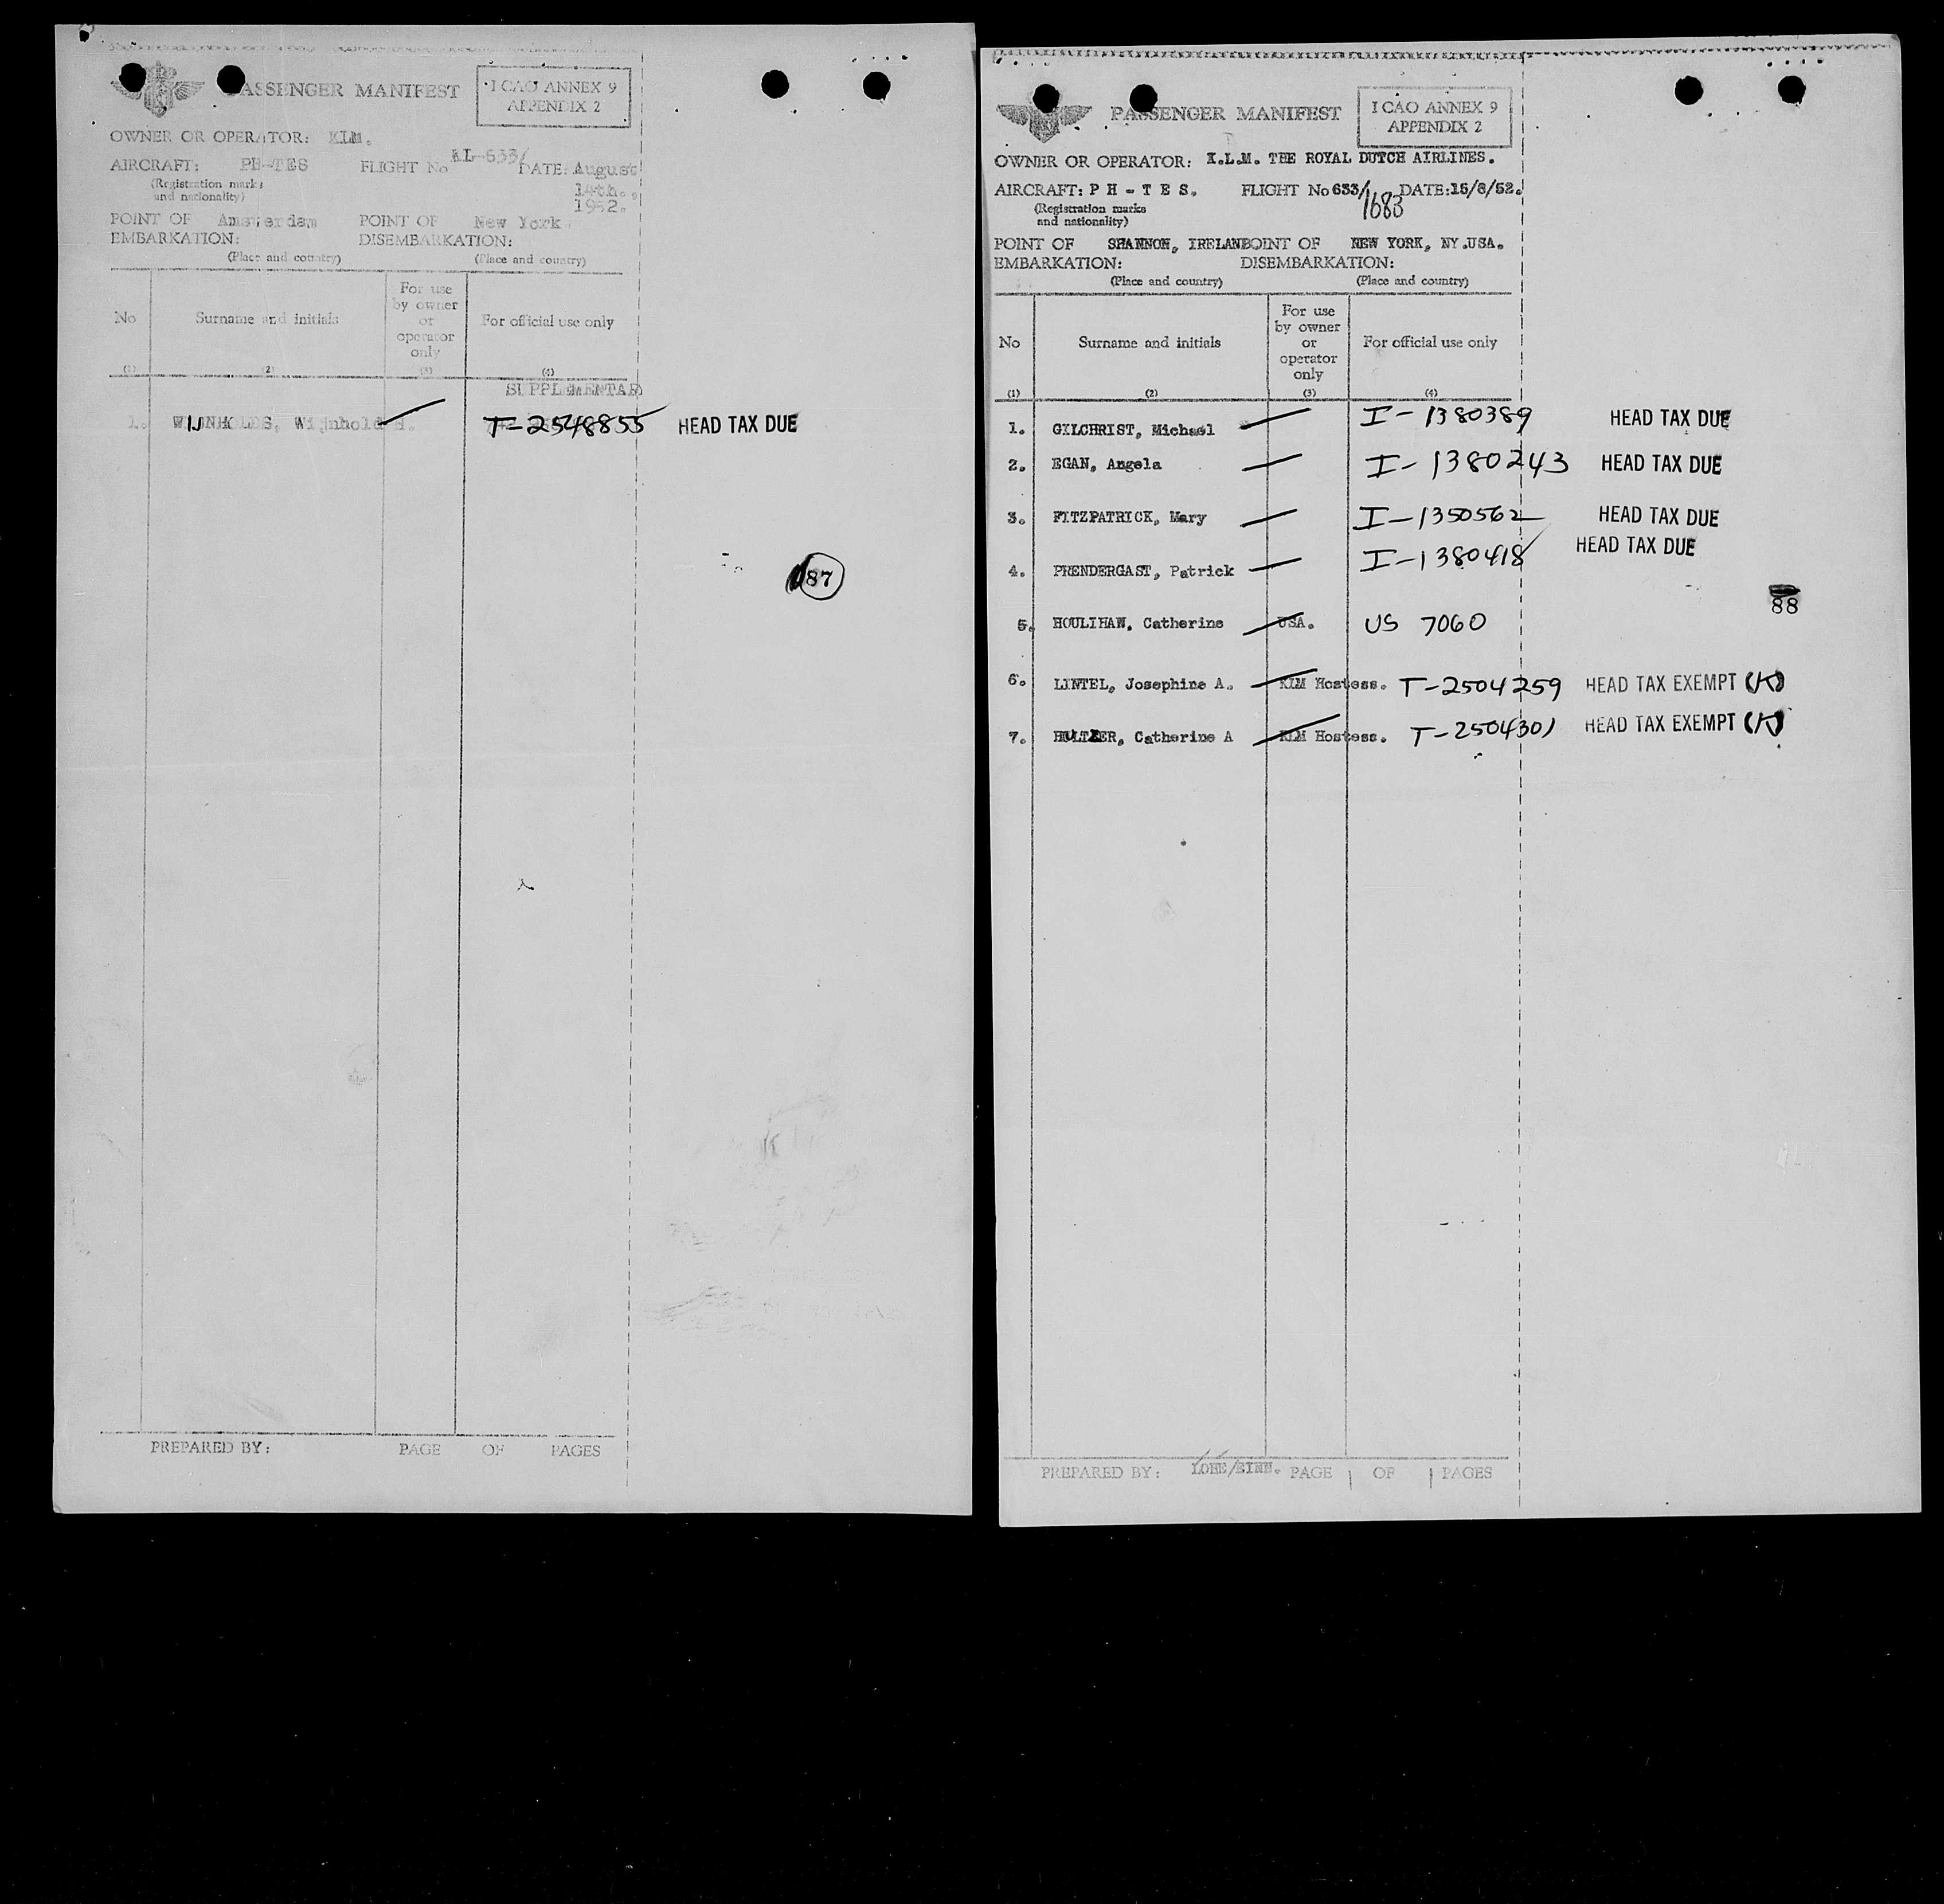 PASSENGER MANIFEST
I CAO ANNEX 9
APPENDIX 2
OWNER OR OPERATOR: KLM.
AIRCRAFT: PH-TES FLIGHT No KL-633/ DATE: August 14th. 1952.
(Registration marks
and nationality)
POINT OF Amsterdam POINT OF New York.
EMBARKATION: DISEMBARKATION:
(Place and country) (Place and country)
No Surname and initials For use by owner or operator only For official use only
(1) (2) (3) (4)
SUPPLEMENTAR
1. WIJNHOLDS, Wijnhold H. T-2548855 HEAD TAX DUE
87
PREPARED BY: PAGE OF PAGES
PASSENGER MANIFEST
I CAO ANNEX 9
APPENDIX 2
OWNER OR OPERATOR: K.L.M. THE ROYAL DUTCH AIRLINES.
AIRCRAFT: P H - T E S. FLIGHT No 633/1683 DATE: 15/8/52.
(Registration marks
and nationality)
POINT OF SHANNON, IRELAND POINT OF NEW YORK, NY.USA.
EMBARKATION: DISEMBARKATION:
(Place and country) (Place and country)
No Surname and initials For use by owner or operator only For official use only
(1) (2) (3) (4)
1. GILCHRIST, Michael I-1380389 HEAD TAX DUE
2. EGAN, Angela I-1380243 HEAD TAX DUE
3. FITZPATRICK, Mary I-1350562 HEAD TAX DUE
4. PRENDERGAST, Patrick I-1380418 HEAD TAX DUE
88
5. HOULIHAN, Catherine USA. US 7060
6. LINTEL, Josephine A. KLM Hostess. T-2504259 HEAD TAX EXEMPT (K)
7. Catherine A KLM Hostess. T-2504301 HEAD TAX EXEMPT (K)
PREPARED BY: PAGE 1 OF 1 PAGES